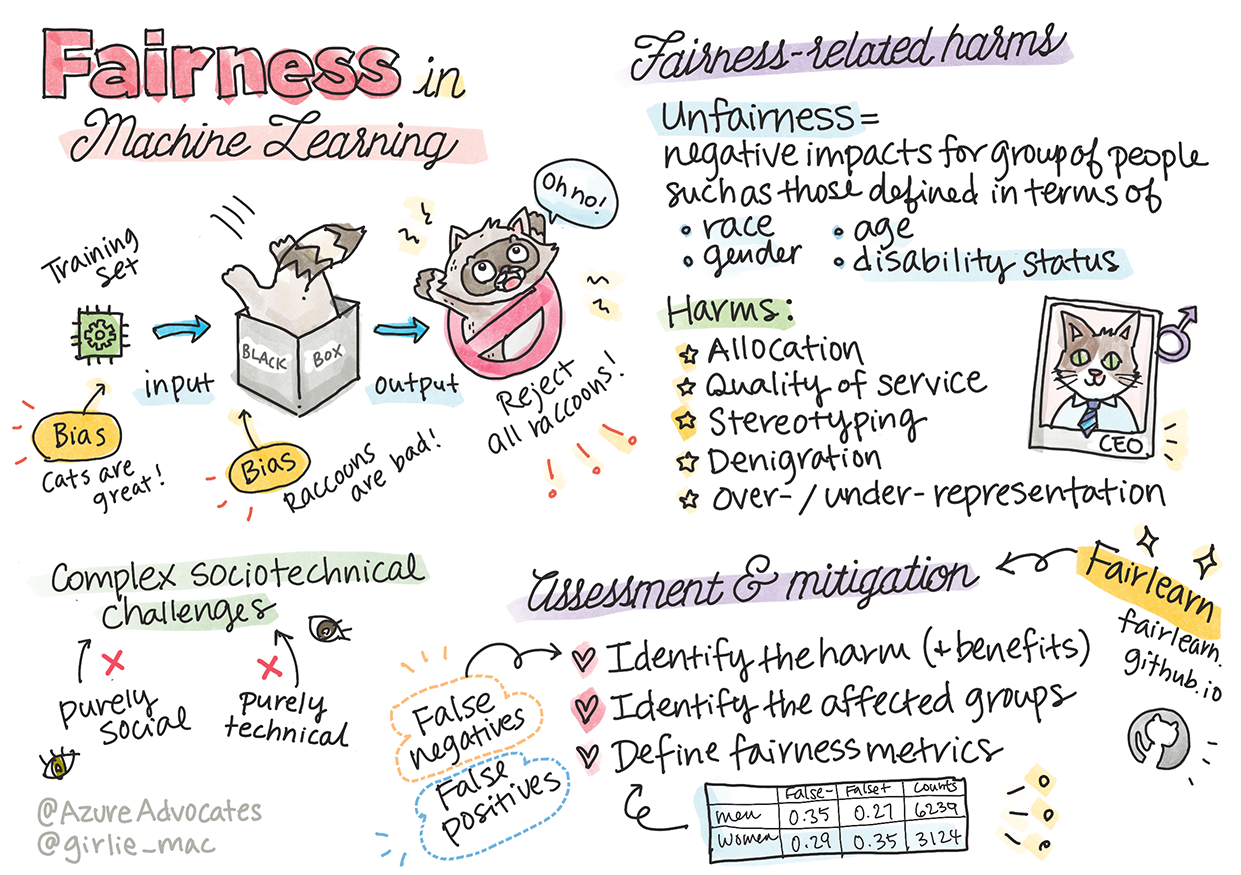 Fairness in
Machine Learning
Training
set
input
BLACK
BOX
output
Oh no!
Reject
all raccoons!
Bias
cats are
great!
Bias
Raccoons
are bad!
Fairness-related harms
Unfairness =
negative impacts for group of people
such as those defined in terms of
• race
• age
• gender
• disability status
Harms:
Allocation
Quality of service
Stereotyping
Denigration
over- / under- representation
CEO.
Complex sociotechnical
challenges
purely
social
purely
technical
@AzureAdvocates
@girlie_mac
Assessment & mitigation
Fairlearn
fairlearn.
github.io
Identify the harm (+ benefits)
Identify the affected groups
Define fairness metrics
False
negatives
False
positives
False- False+ Counts
men 0.35 0.27 6239
Women 0.29 0.35 3124